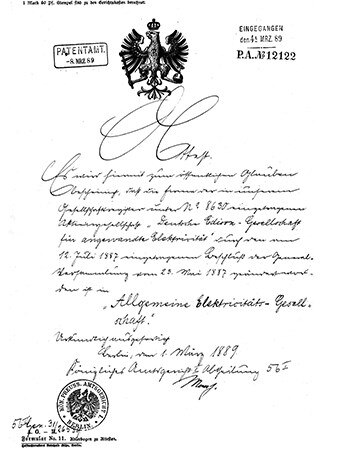 1 Mark 50 Pf. Stempel sind zu den Gerichtskosten berechnet.
PATENTAMT.
-8. MRZ. 89
EINGEGANGEN
den 4. MRZ. 89
P.A. № 12122
Attest.
Es wird hiermit zum öffentlichen Glauben
bescheinigt, daß die Firma der in unserem
Gesellschaftsregister unter No 8630 eingetragenen
Aktiengesellschaft "Deutsche Edison-Gesellschaft
für angewandte Elektricität" durch den am
12. Juli 1887 eingetragenen Beschluß der General-
Versammlung vom 23. Mai 1887 geändert wor-
den ist in
"Allgemeine Elektricitäts-Gesell-
schaft."
Urkundlich ausgefertigt
Berlin, den 1. März 1889
Königliches Amtsgericht I Abtheilung 56 I
KÖN. PREUSS. AMTSGERICHT I
BERLIN
F. O. — H.
Formular No. 11.